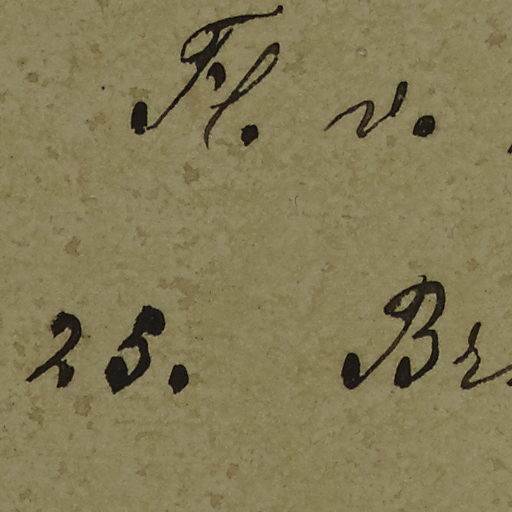 Fl. v.
25. Br